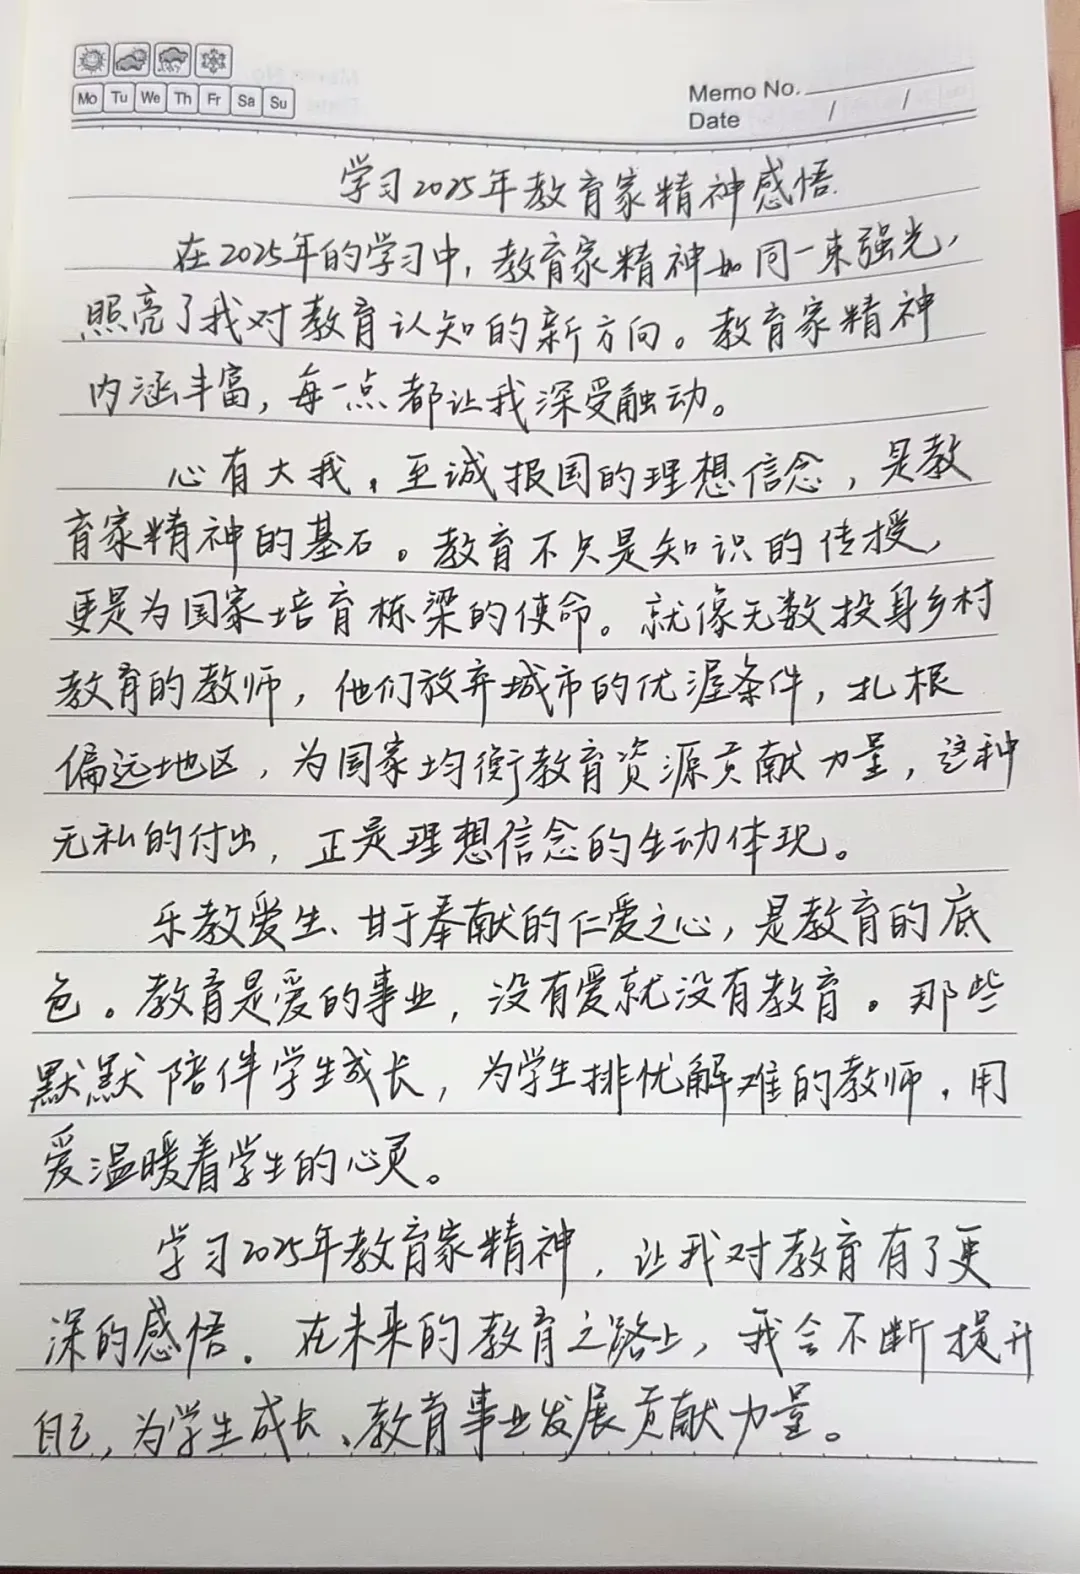 Mo Tu We Th Fr Sa Su
Memo No.
Date / /
学习2025年教育家精神感悟.
在2025年的学习中,教育家精神如同一束强光,
照亮了我对教育认知的新方向。教育家精神
内涵丰富,每一点都让我深受触动。
心有大我,至诚报国的理想信念,是教
育家精神的基石。教育不只是知识的传授,
更是为国家培育栋梁的使命。就像无数投身乡村
教育的教师,他们放弃城市的优渥条件,扎根
偏远地区,为国家均衡教育资源贡献力量,这种
无私的付出,正是理想信念的生动体现。
乐教爱生、甘于奉献的仁爱之心,是教育的底
色。教育是爱的事业,没有爱就没有教育。那些
默默陪伴学生成长,为学生排忧解难的教师,用
爱温暖着学生的心灵。
学习2025年教育家精神,让我对教育有了更
深的感悟。在未来的教育之路上,我会不断提升
自己,为学生成长、教育事业发展贡献力量。